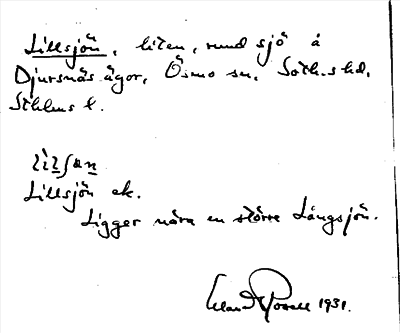 Lillsjön, liten, rund sjö å
Djursnäs ägor, Ösmo sn, Soth.s hd,
Sthlms l.
Lillsjön ek.
Ligger nära en större Långsjön.
1931.